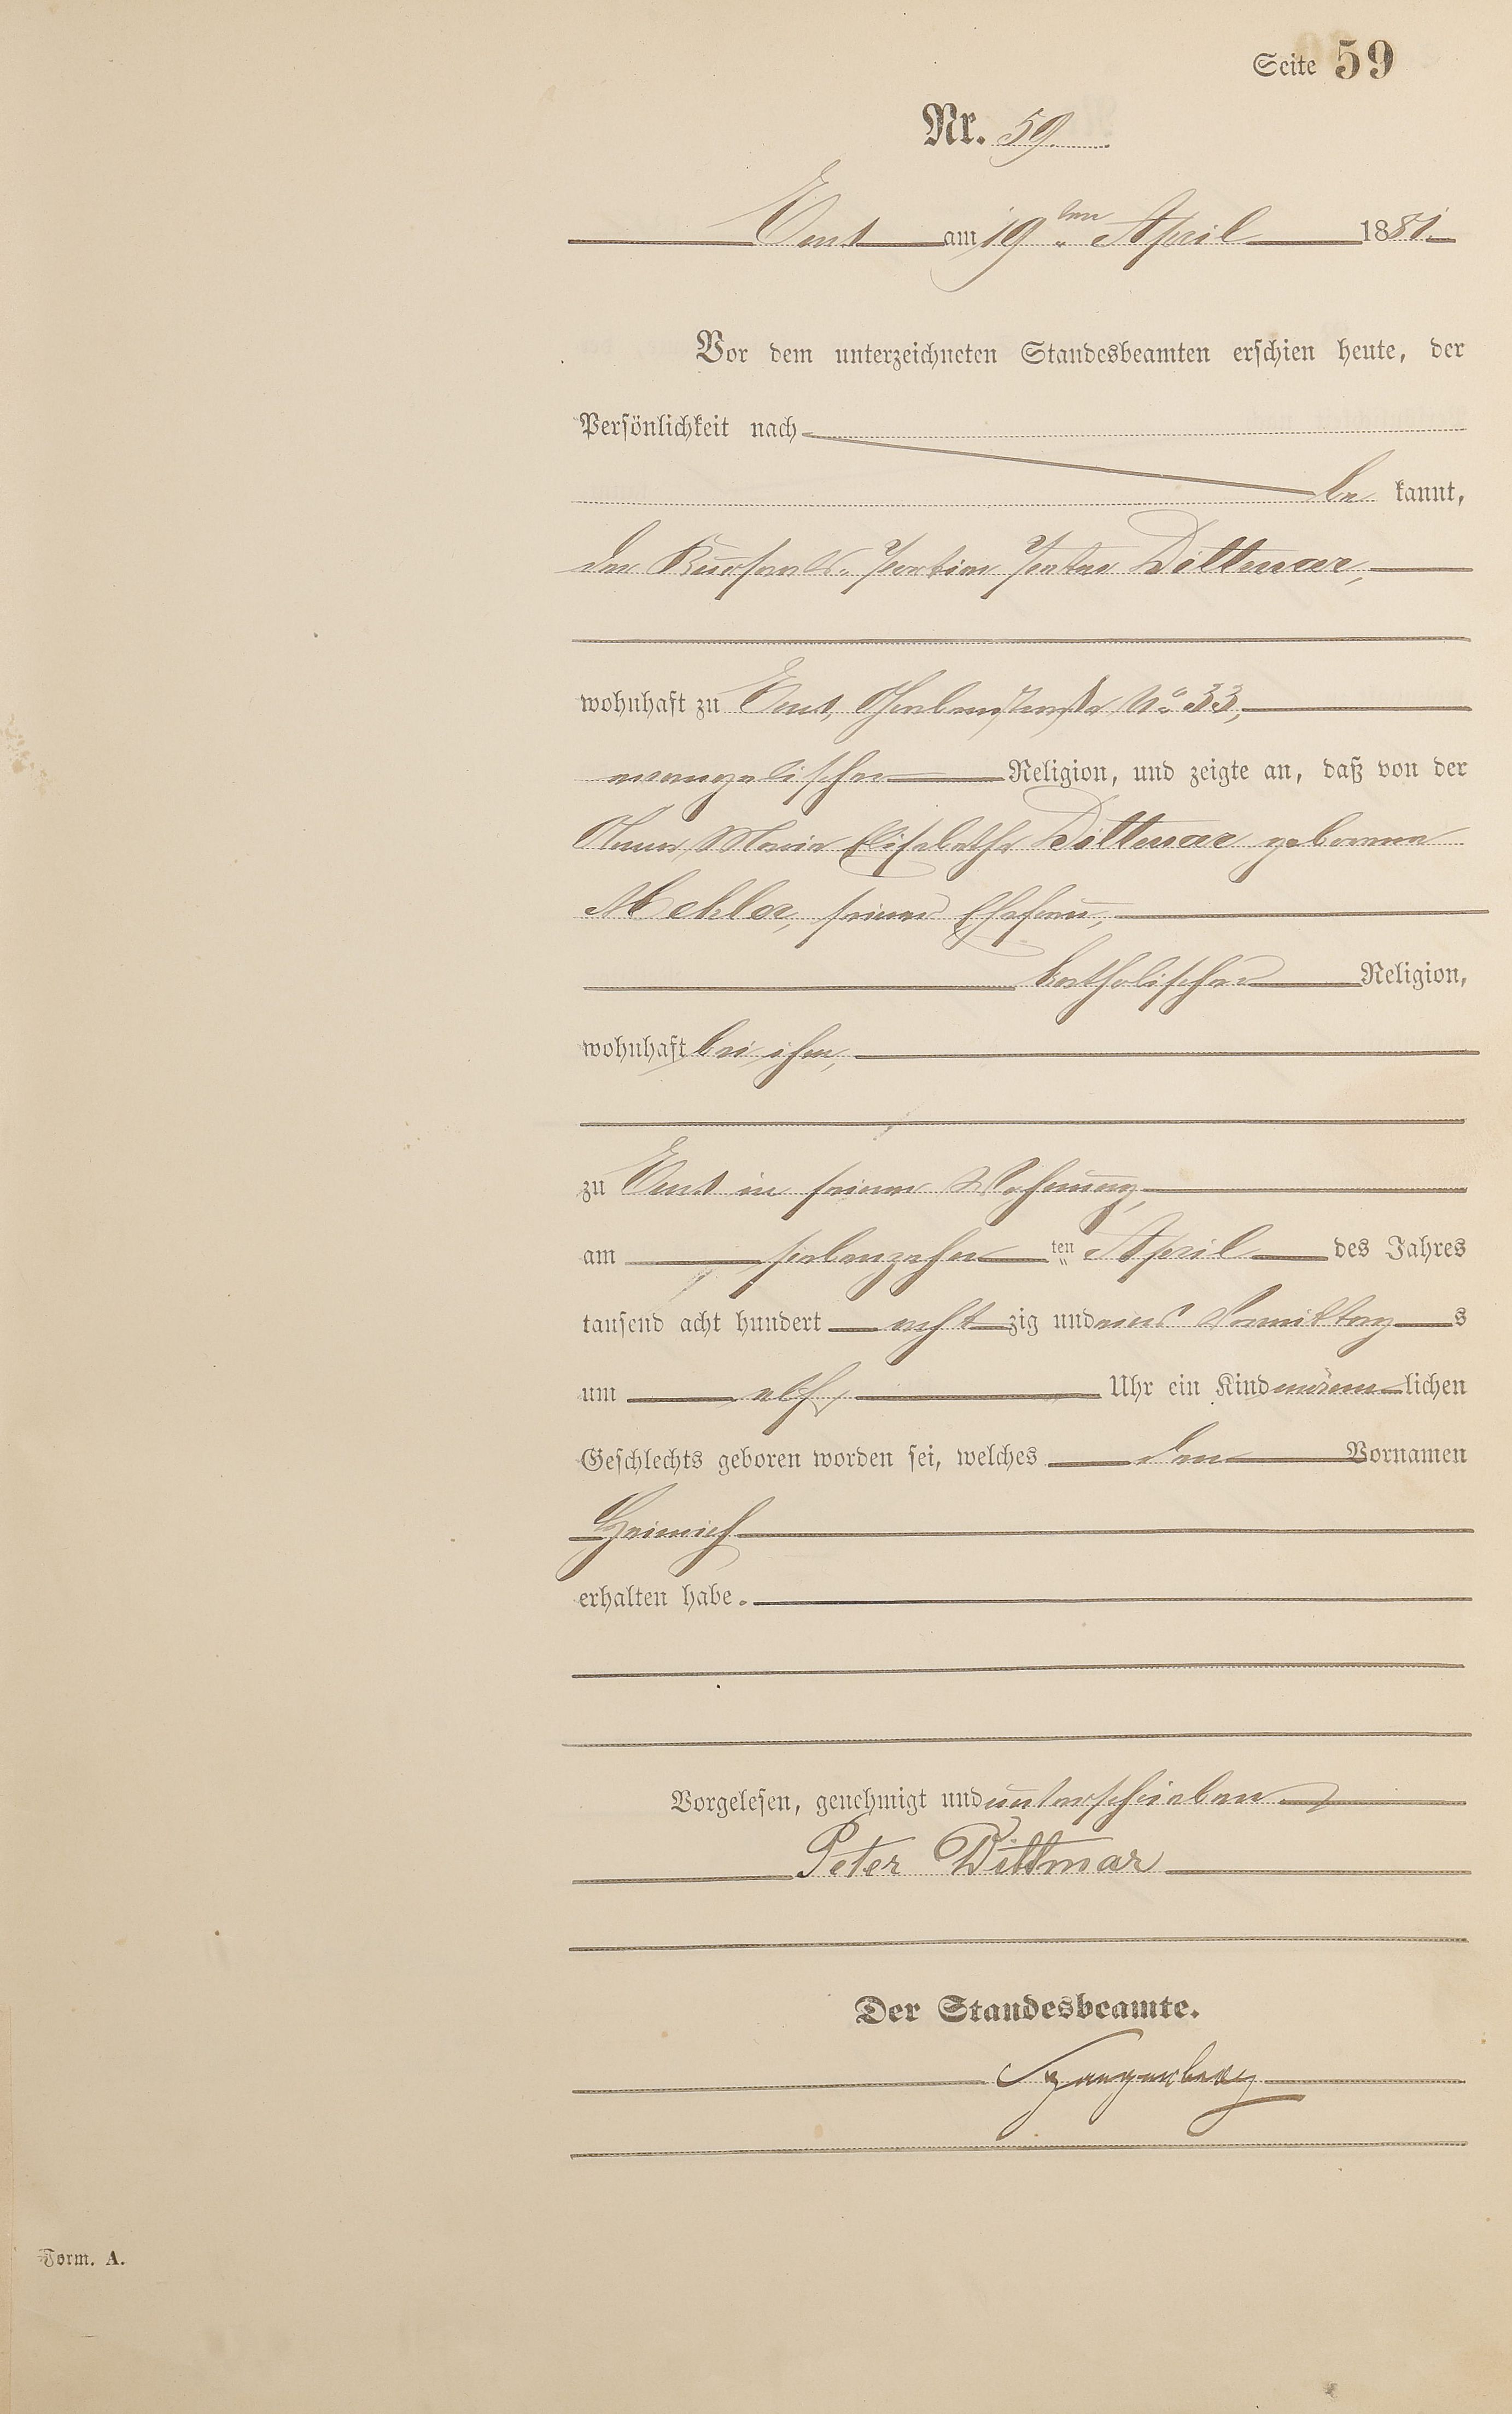 Seite 59
Nr. 59.
Ems am 19ten April 1881.
Vor dem unterzeichneten Standesbeamten erschien heute, der
Persönlichkeit nach
be kannt,
der Kursaals-Portier Peter Dittmar,
wohnhaft zu Ems, No 33,
evangelischer Religion, und zeigte an, daß von der
Anna Maria Elisabetha Dittmar geborenen
Mehler, seiner Ehefrau,
katholischer Religion,
wohnhaft bei ihm,
zu Ems in seiner Wohnung,
am siebenzehn ten April des Jahres
tausend acht hundert acht zig und eins Vormittag s
um elf Uhr ein Kind männ lichen
Geschlechts geboren worden sei, welches den Vornamen
Heinrich
erhalten habe.
Vorgelesen, genehmigt und unterschrieben
Peter Dittmar
Der Standesbeamte.
Spangenberg
Form. A.